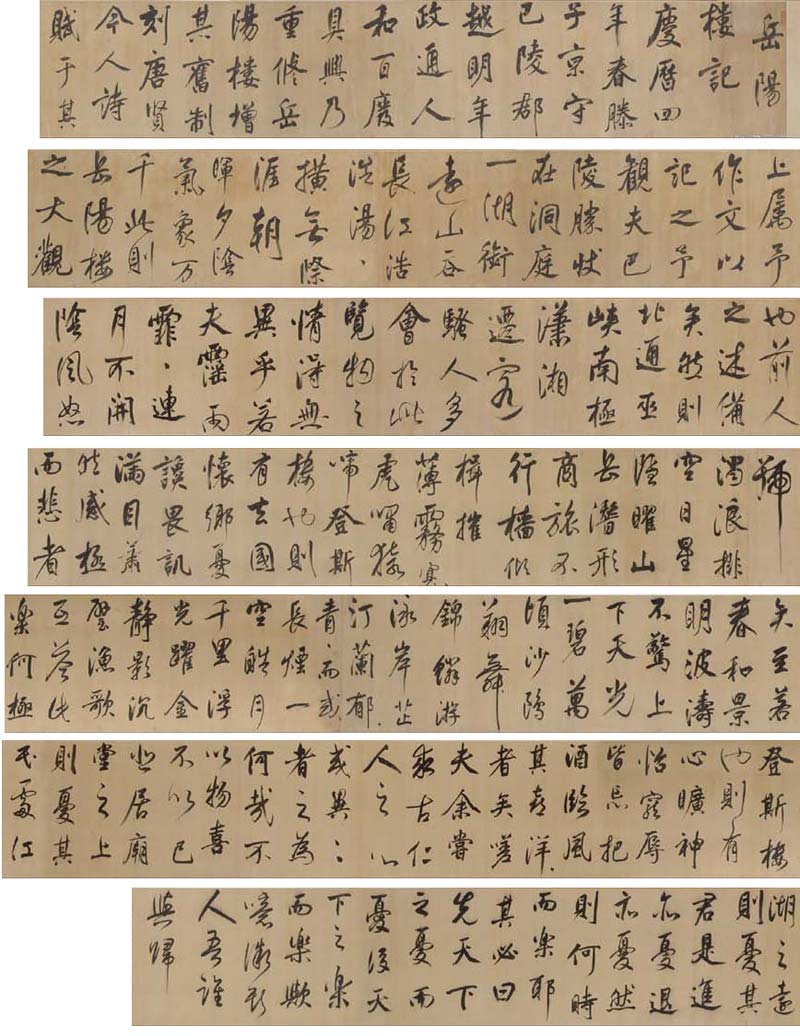 岳陽
樓記
慶曆四
年春滕
子京守
巴陵郡
越明年
政通人
和百廢
具興乃
重修岳
陽樓增
其舊制
刻唐賢
今人詩
賦于其
上属予
作文以
記之予
觀夫巴
陵勝狀
在洞庭
一湖銜
遠山吞
長江浩
浩湯、
橫無際
涯朝
暉夕陰
氣象万
千此則
岳陽樓
之大觀
也前人
之述備
矣然則
北通巫
峽南極
瀟湘
遷客
騷人多
會於此
覽物之
情得無
異乎若
夫霪雨
霏、連
月不開
陰風怒
號
濁浪排
空日星
隱曜山
岳潛形
商旅不
行檣傾
楫摧
薄霧冥
虎嘯猿
啼登斯
樓也則
有去國
懷鄉憂
讒畏譏
滿目蕭
然感極
而悲者
矣至若
春和景
明波濤
不驚上
下天光
一碧萬
頃沙鷗
翔舞
錦鱗游
泳岸芷
汀蘭郁、
青、而或
長煙一
空皓月
千里浮
光躍金
靜影沉
璧漁歌
互答此
樂何極
登斯樓
也則有
心曠神
怡寵辱
皆忘把
酒臨風
其喜洋、
者矣嗟
夫余嘗
求古仁
人之心
或異、
者之為
何哉不
以物喜
不以已
悲居廟
堂之上
則憂其
民處江
湖之遠
則憂其
君是進
亦憂退
亦憂然
則何時
而樂耶
其必曰
先天下
之憂而
憂後天
下之樂
而樂歟
噫微斯
人吾誰
與歸